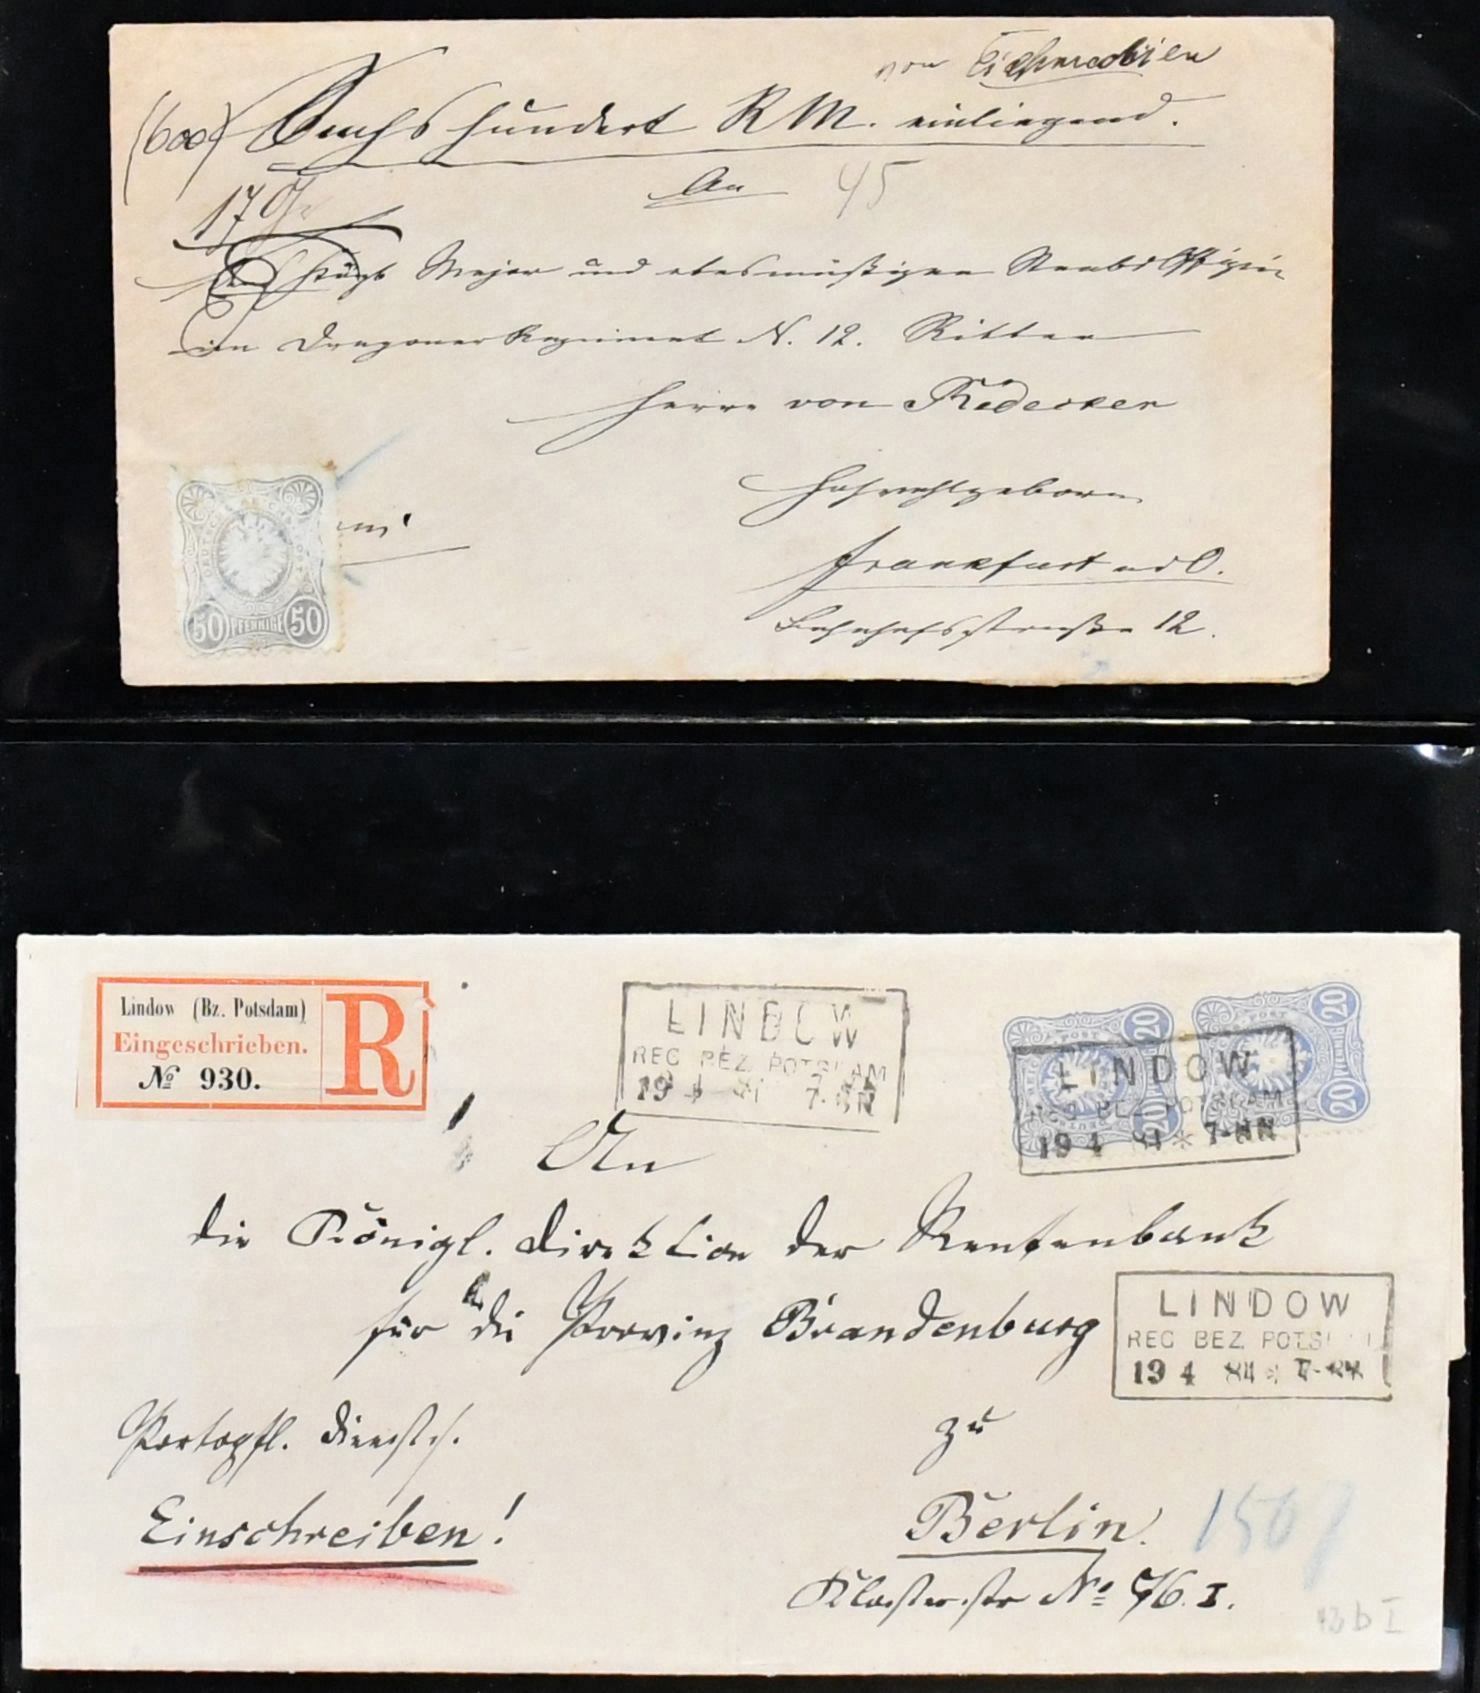 von
(600) Sechshundert RM. einliegend.
An 45
17 Gr
Major und etatsmäßigen Stabsoffizier
im Dragoner Regiment N. 12. Ritter
Herrn von Redecker
Hochwohlgeboren
Frankfurt a/O.
Bahnhofsstraße 12.
DEUTSCHE REICHS-POST
50 PFENNIGE 50
Lindow (Bz. Potsdam)
Eingeschrieben.
№ 930.
R
LINDOW
REG BEZ. POTSDAM
19 4 81 7-8N
20 PFENNIG 20
20 PFENNIG 20
LINDOW
REG BEZ. POTSDAM
19 4 81 * 7-8N
An
die Königl. Direktion der Rentenbank
für die Provinz Brandenburg
LINDOW
REG BEZ. POTSD
19 4 84 * 7-8N
Portopfl. Dienstf.
zu
Einschreiben!
Berlin.
150
Klosterstr No 76. I.
42 b I